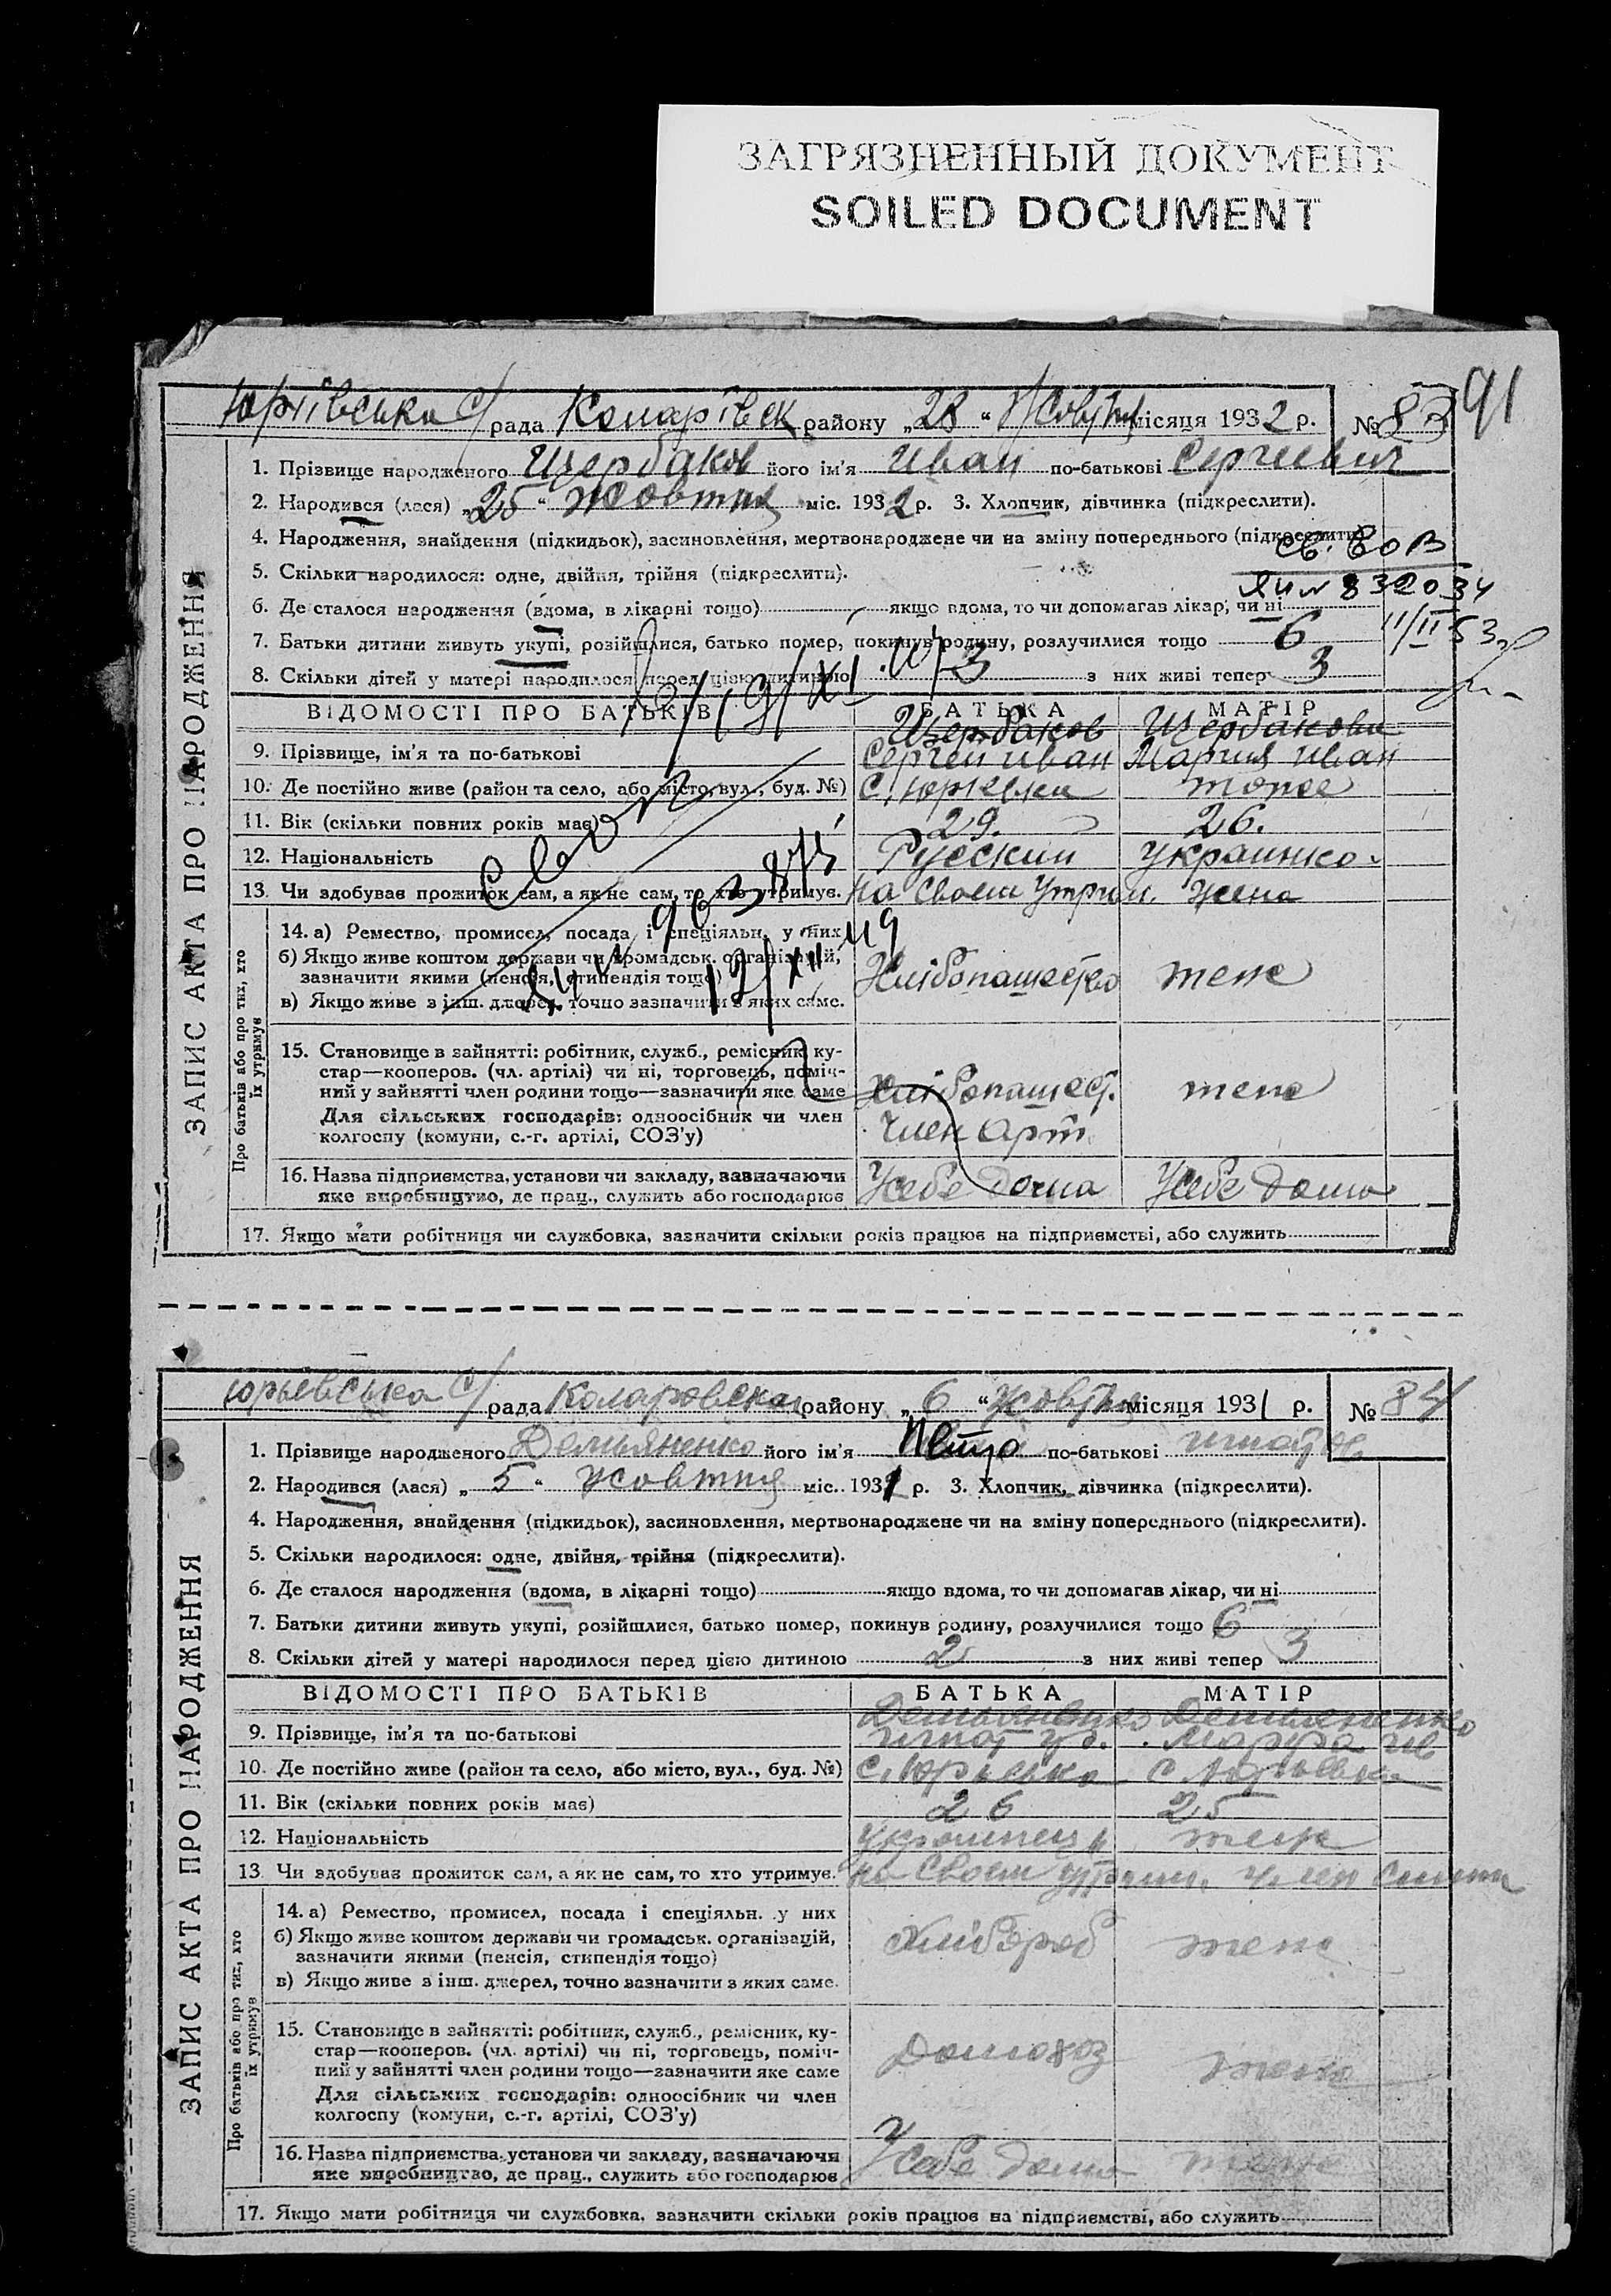 ЗАГРЯЗНЕННЫЙ ДОКУМЕНТ
SOILED DOCUMENT
91
Юріївська с/рада Коларівск району „28“ Жовтня місяця 1932 р. № 83
ЗАПИС АКТА ПРО НАРОДЖЕННЯ
1. Прізвище народженого Щербаков його ім'я Иван по-батькові Сергиевич
2. Народився (лася) „25“ Жовтня міс. 1932 р. 3. Хлопчик, дівчинка (підкреслити).
4. Народження, знайдення (підкидьок), засиновлення, мертвонароджене чи на зміну попереднього (підкреслити).
5. Скільки народилося: одне, двійня, трійня (підкреслити).
6. Де сталося народження (вдома, в лікарні тощо) якщо вдома, то чи допомагав лікар, чи ні
832034
7. Батьки дитини живуть укупі, розійшлися, батько помер, покинув родину, розлучилися тощо 6
11/II 53
8. Скільки дітей у матері народилося перед цією дитиною 3 з них живі тепер 3
ВІДОМОСТІ ПРО БАТЬКІВ БАТЬКА МАТІР
Щербаков Щербакова
9. Прізвище, ім'я та по-батькові Сергей Иван Мария Иван
10. Де постійно живе (район та село, або місто, вул., буд. №) С. Юрьевка тоже
11. Вік (скільки повних років має) 29. 26.
12. Національність Русский украинка
13. Чи здобуває прожиток сам, а як не сам, то хто утримує. На своем утрим. жена
Про батьків або про тих, хто їх утримує
14. а) Ремество, промисел, посада і спеціяльн. у них
б) Якщо живе коштом держави чи громадськ. організацій,
зазначити якими (пенсія, стипендія тощо) Хлібопашество теж
в) Якщо живе з інш. джерел, точно зазначити з яких саме.
15. Становище в зайнятті: робітник, служб., ремісник, ку-
стар—кооперов. (чл. артілі) чи ні, торговець, поміч-
ний у зайнятті член родини тощо—зазначити яке саме Хлібопашест. теж
Для сільських господарів: одноосібник чи член Член Арт.
колгоспу (комуни, с.-г. артілі, СОЗ'у)
16. Назва підприємства, установи чи закладу, зазначаючи Усебе дома Усебе дома
яке виробництво, де прац., служить або господарює
17. Якщо мати робітниця чи службовка, зазначити скільки років працює на підприємстві, або служить
Юрьевська с/рада Коларовска району „6“ Жовтня місяця 1931 р. № 84
ЗАПИС АКТА ПРО НАРОДЖЕННЯ
1. Прізвище народженого Демьяненко його ім'я Петро по-батькові Игнат
2. Народився (лася) „5“ жовтня міс. 1931 р. 3. Хлопчик, дівчинка (підкреслити).
4. Народження, знайдення (підкидьок), засиновлення, мертвонароджене чи на зміну попереднього (підкреслити).
5. Скільки народилося: одне, двійня, трійня (підкреслити).
6. Де сталося народження (вдома, в лікарні тощо) якщо вдома, то чи допомагав лікар, чи ні
7. Батьки дитини живуть укупі, розійшлися, батько помер, покинув родину, розлучилися тощо 6
8. Скільки дітей у матері народилося перед цією дитиною 2 з них живі тепер 3
ВІДОМОСТІ ПРО БАТЬКІВ БАТЬКА МАТІР
Демьяненко Демьяненко
9. Прізвище, ім'я та по-батькові Игнат
10. Де постійно живе (район та село, або місто, вул., буд. №) С. Юрьевка с Юрьевка
11. Вік (скільки повних років має) 26 25
12. Національність украинец теж
13. Чи здобуває прожиток сам, а як не сам, то хто утримує. на своем утрим. член
Про батьків або про тих, хто їх утримує
14. а) Ремество, промисел, посада і спеціяльн. у них
б) Якщо живе коштом держави чи громадськ. організацій, Хлібороб теж
зазначити якими (пенсія, стипендія тощо)
в) Якщо живе з інш. джерел, точно зазначити з яких саме.
15. Становище в зайнятті: робітник, служб., ремісник, ку-
стар—кооперов. (чл. артілі) чи ні, торговець, поміч- Домохоз теж
ний у зайнятті член родини тощо—зазначити яке саме
Для сільських господарів: одноосібник чи член
колгоспу (комуни, с.-г. артілі, СОЗ'у)
16. Назва підприємства, установи чи закладу, зазначаючи Усебе дома теж
яке виробництво, де прац., служить або господарює
17. Якщо мати робітниця чи службовка, зазначити скільки років працює на підприємстві, або служить